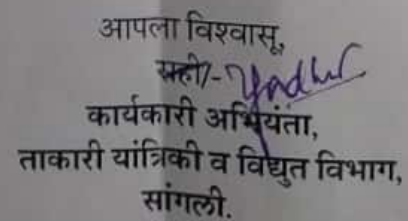 आपला विश्वासू,
सही/-
कार्यकारी अभियंता,
ताकारी यांत्रिकी व विद्युत विभाग,
सांगली.